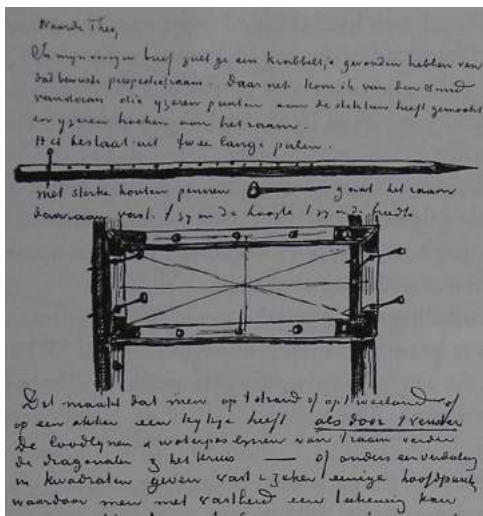 Waarde Theo,
In mijn vorigen brief zult ge een krabbeltje gevonden hebben van
dat bewuste perspectiefraam. Daar net kom ik van den smid
vandaan die yzeren punten aan de stokken heeft gemaakt
en yzeren hoeken aan het raam.
Het bestaat uit twee lange palen.
met sterke houten pennen gaat het raam
daaraan vast. 't zy in de hoogte 't zy in de breedte.
Dit maakt dat men op 't strand of op 't weiland of
op een akker een kykje heeft als door 't venster
De loodlynen & waterpaslynen van 't raam verder
de diagonalen & het kruis — of anders een verdeling
in kwadraten geven vast & zeker eenige hoofdpunten
waardoor men met vastheid een teekening kan